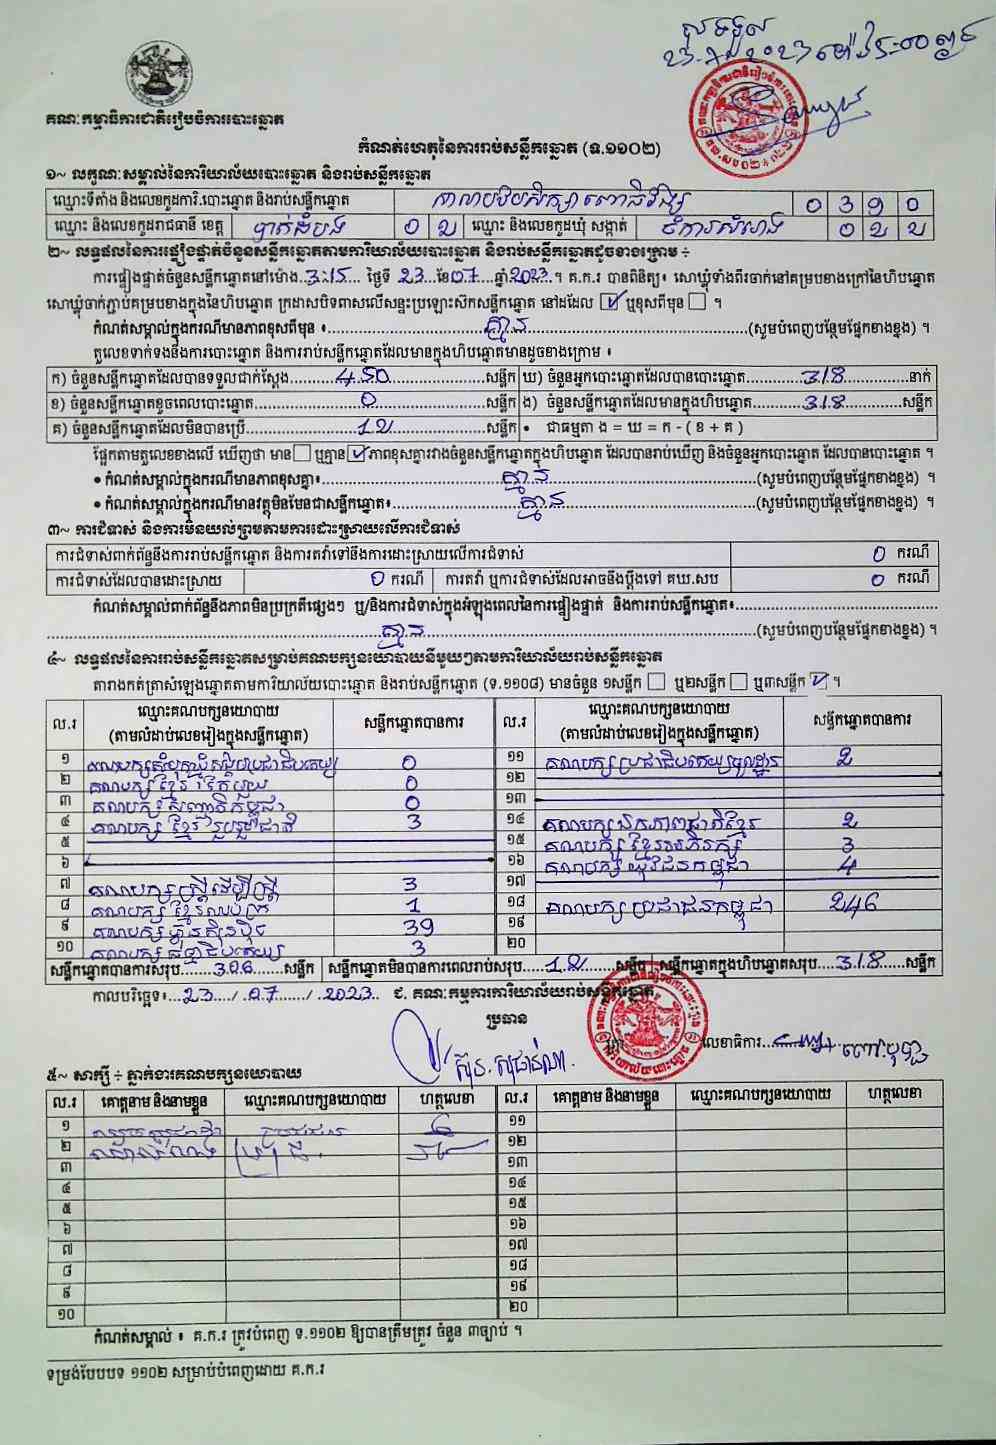 គណៈកម្មាធិការជាតិរៀបចំការបោះឆ្នោត
កំណត់ហេតុនៃការរាប់សន្លឹកឆ្នោត (ទ.១១០២)
១~ លក្ខណៈសម្គាល់នៃការិយាល័យបោះឆ្នោត និងរាប់សន្លឹកឆ្នោត
ឈ្មោះទីតាំង និងលេខកូដការិ.បោះឆ្នោត និងរាប់សន្លឹកឆ្នោត 0 3 9 0
ឈ្មោះ និងលេខកូដរាជធានី ខេត្ត បាត់ដំបង ០ ២ ឈ្មោះ និងលេខកូដឃុំ សង្កាត់ ចំការសំរោង ០ ២ ២
២~ លទ្ធផលនៃការផ្ទៀងផ្ទាត់ចំនួនសន្លឹកឆ្នោតតាមការិយាល័យបោះឆ្នោត និងរាប់សន្លឹកឆ្នោតដូចខាងក្រោម ÷
ការផ្ទៀងផ្ទាត់ចំនួនសន្លឹកឆ្នោតនៅម៉ោង 3:15 ថ្ងៃទី 23 ខែ 07 ឆ្នាំ 2023 ។ គ.ក.រ បានពិនិត្យ៖ សោឃ្លុំទាំងពីរចាក់នៅគម្របខាងក្រៅនៃហិបឆ្នោត
សោឃ្លុំចាក់ភ្ជាប់គម្របខាងក្នុងនៃហិបឆ្នោត ក្រដាសបិទពាសលើសន្ទះប្រឡោះសិកសន្លឹកឆ្នោត នៅដដែល ☑ ឬខុសពីមុន ☐ ។
កំណត់សម្គាល់ក្នុងករណីមានភាពខុសពីមុន ៖ គ្មាន (សូមបំពេញបន្ថែមផ្នែកខាងខ្នង) ។
តួលេខទាក់ទងនឹងការបោះឆ្នោត និងការរាប់សន្លឹកឆ្នោតដែលមានក្នុងហិបឆ្នោតមានដូចខាងក្រោម ៖
ក) ចំនួនសន្លឹកឆ្នោតដែលបានទទួលជាក់ស្តែង 450 សន្លឹក ឃ) ចំនួនអ្នកបោះឆ្នោតដែលបានបោះឆ្នោត 318 នាក់
ខ) ចំនួនសន្លឹកឆ្នោតខូចពេលបោះឆ្នោត 0 សន្លឹក ង) ចំនួនសន្លឹកឆ្នោតដែលមានក្នុងហិបឆ្នោត 318 សន្លឹក
គ) ចំនួនសន្លឹកឆ្នោតដែលមិនបានប្រើ សន្លឹក • ជាធម្មតា ង = ឃ = ក - ( ខ + គ )
ផ្អែកតាមតួលេខខាងលើ ឃើញថា មាន ☐ ឬគ្មាន ☑ ភាពខុសគ្នារវាងចំនួនសន្លឹកឆ្នោតក្នុងហិបឆ្នោត ដែលបានរាប់ឃើញ និងចំនួនអ្នកបោះឆ្នោត ដែលបានបោះឆ្នោត ។
• កំណត់សម្គាល់ក្នុងករណីមានភាពខុសគ្នា៖ គ្មាន (សូមបំពេញបន្ថែមផ្នែកខាងខ្នង) ។
• កំណត់សម្គាល់ក្នុងករណីមានវត្ថុមិនមែនជាសន្លឹកឆ្នោត៖ គ្មាន (សូមបំពេញបន្ថែមផ្នែកខាងខ្នង) ។
៣~ ការជំទាស់ និងការមិនយល់ព្រមតាមការដោះស្រាយលើការជំទាស់
ការជំទាស់ពាក់ព័ន្ធនឹងការរាប់សន្លឹកឆ្នោត និងការតវ៉ាទៅនឹងការដោះស្រាយលើការជំទាស់ 0 ករណី
ការជំទាស់ដែលបានដោះស្រាយ 0 ករណី ការតវ៉ា ឬការជំទាស់ដែលអាចនឹងប្តឹងទៅ គឃ.សប 0 ករណី
កំណត់សម្គាល់ពាក់ព័ន្ធនឹងភាពមិនប្រក្រតីផ្សេងៗ ឬ/និងការជំទាស់ក្នុងអំឡុងពេលនៃការផ្ទៀងផ្ទាត់ និងការរាប់សន្លឹកឆ្នោត៖
គ្មាន (សូមបំពេញបន្ថែមផ្នែកខាងខ្នង) ។
៤~ លទ្ធផលនៃការរាប់សន្លឹកឆ្នោតសម្រាប់គណបក្សនយោបាយនីមួយៗតាមការិយាល័យរាប់សន្លឹកឆ្នោត
តារាងកត់ត្រាសំឡេងឆ្នោតតាមការិយាល័យបោះឆ្នោត និងរាប់សន្លឹកឆ្នោត (ទ.១១០៨) មានចំនួន ១សន្លឹក ☐ ឬ២សន្លឹក ☐ ឬ៣សន្លឹក ☑ ។
ល.រ ឈ្មោះគណបក្សនយោបាយ (តាមលំដាប់លេខរៀងក្នុងសន្លឹកឆ្នោត) សន្លឹកឆ្នោតបានការ ល.រ ឈ្មោះគណបក្សនយោបាយ (តាមលំដាប់លេខរៀងក្នុងសន្លឹកឆ្នោត) សន្លឹកឆ្នោតបានការ
១ គណបក្សសំបុកឃ្មុំសង្គមប្រជាធិបតេយ្យ 0 ១១ គណបក្សប្រជាធិបតេយ្យមូលដ្ឋាន 2
២ គណបក្សខ្មែរតែមួយ 0 ១២
៣ គណបក្សសញ្ជាតិកម្ពុជា 0 ១៣
៤ គណបក្សខ្មែររួបរួមជាតិ 3 ១៤ គណបក្សឯកភាពជាតិខ្មែរ 2
៥ ១៥ គណបក្សខ្មែរអភិរក្ស 3
៦ ១៦ គណបក្សយុវជនកម្ពុជា 4
៧ គណបក្សស្ត្រីដើម្បីស្ត្រី 3 ១៧
៨ គណបក្សខ្មែរឈប់ក្រ 1 ១៨ គណបក្សប្រជាជនកម្ពុជា 246
៩ គណបក្សហ៊្វុនស៊ិនប៉ិច 39 ១៩
១០ គណបក្សធម្មាធិបតេយ្យ 3 ២០
សន្លឹកឆ្នោតបានការសរុប 306 សន្លឹក សន្លឹកឆ្នោតមិនបានការពេលរាប់សរុប 12 សន្លឹក សន្លឹកឆ្នោតក្នុងហិបឆ្នោតសរុប 318 សន្លឹក
កាលបរិច្ឆេទ៖ 23 / 07 / 2023 ជ. គណៈកម្មការការិយាល័យរាប់សន្លឹកឆ្នោត
ប្រធាន
លេខាធិការ
៥~ សាក្សី ÷ ភ្នាក់ងារគណបក្សនយោបាយ
ល.រ គោត្តនាម និងនាមខ្លួន ឈ្មោះគណបក្សនយោបាយ ហត្ថលេខា ល.រ គោត្តនាម និងនាមខ្លួន ឈ្មោះគណបក្សនយោបាយ ហត្ថលេខា
១ ១១
២ ១២
៣ ១៣
៤ ១៤
៥ ១៥
៦ ១៦
៧ ១៧
៨ ១៨
៩ ១៩
១០ ២០
កំណត់សម្គាល់ ៖ គ.ក.រ ត្រូវបំពេញ ទ.១១០២ ឱ្យបានត្រឹមត្រូវ ចំនួន ៣ច្បាប់ ។
ទម្រង់បែបបទ ១១០២ សម្រាប់បំពេញដោយ គ.ក.រ